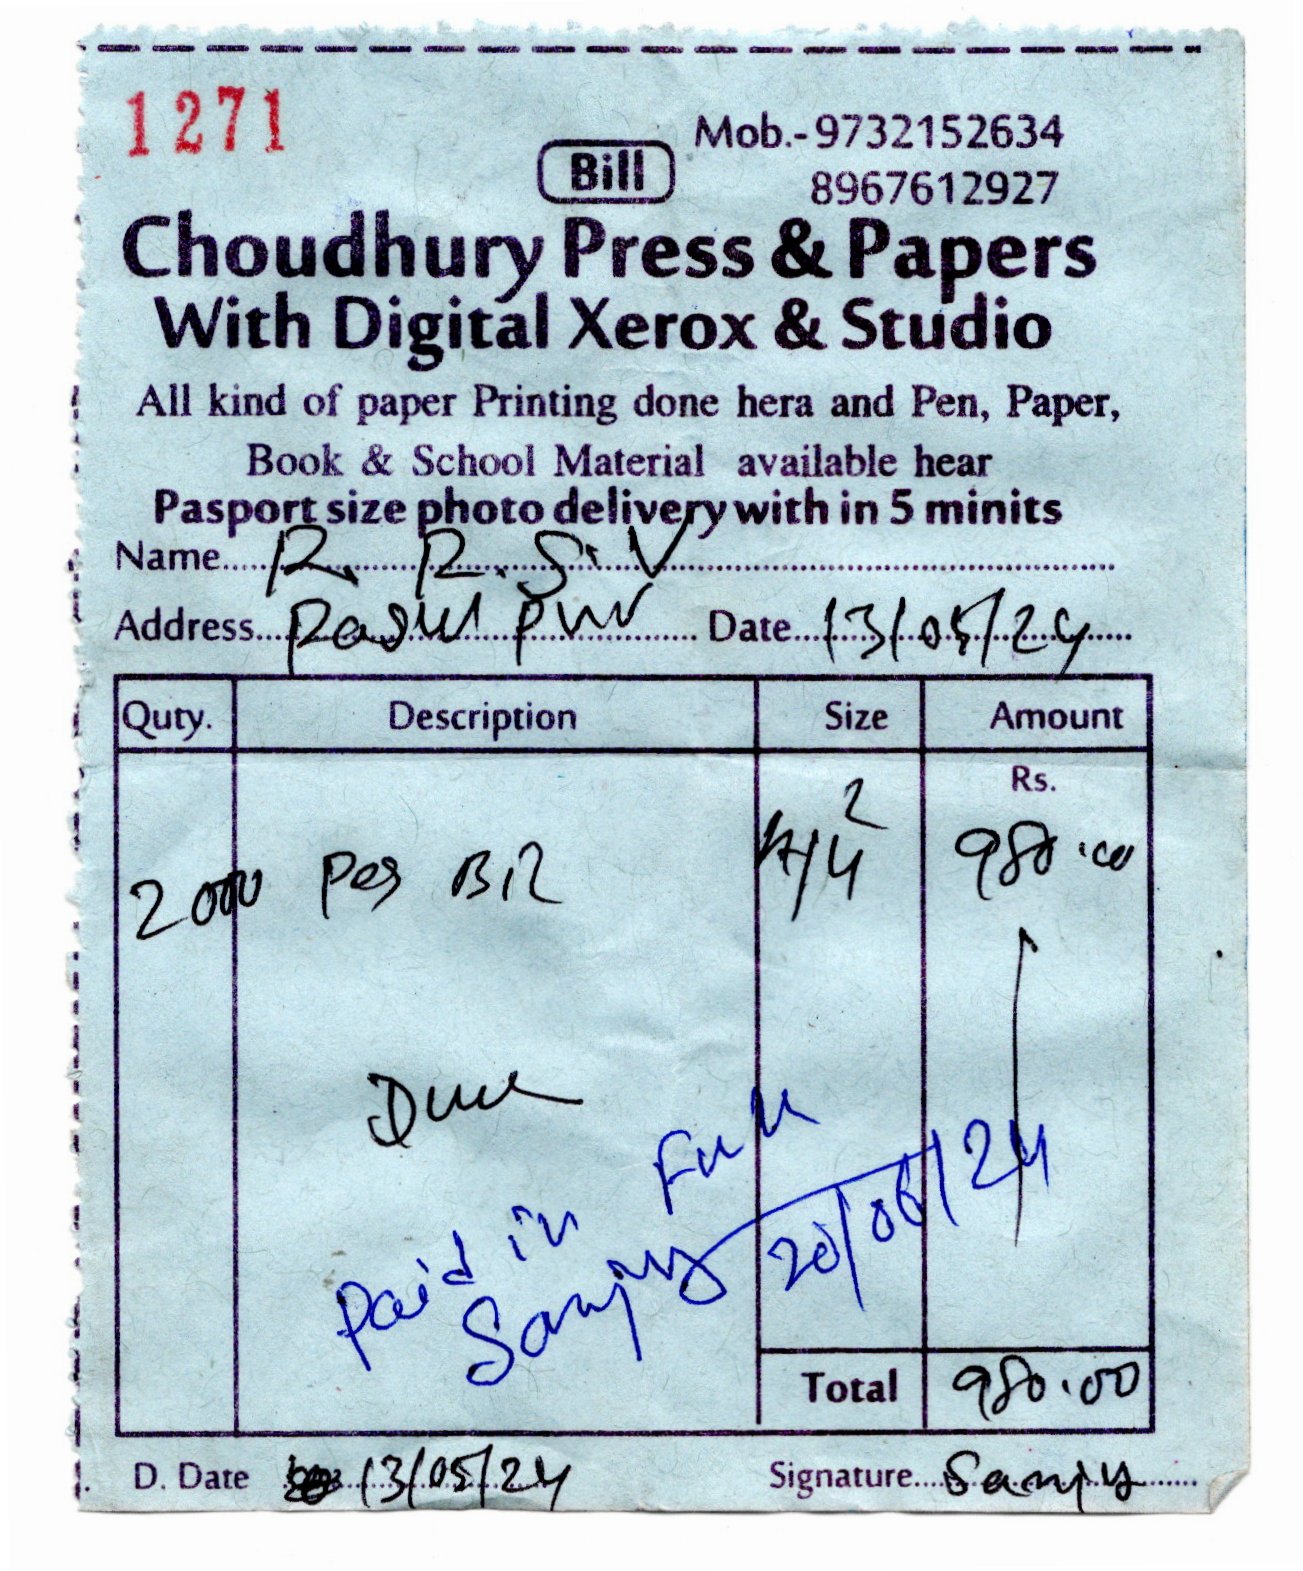 1271
Mob.-9732152634
Bill
8967612927
Choudhury Press & Papers
With Digital Xerox & Studio
All kind of paper Printing done hera and Pen, Paper,
Book & School Material available hear
Pasport size photo delivery with in 5 minits
Name..... R. R. S. V
Address... Date... 13/05/24
Quty. Description Size Amount
Rs.
2000 Pcs A/4 2 980.00
Due
Paid in Full
Sanjay 20/06/24
Total 980.00
D. Date 13/05/24 Signature.... Sanjay